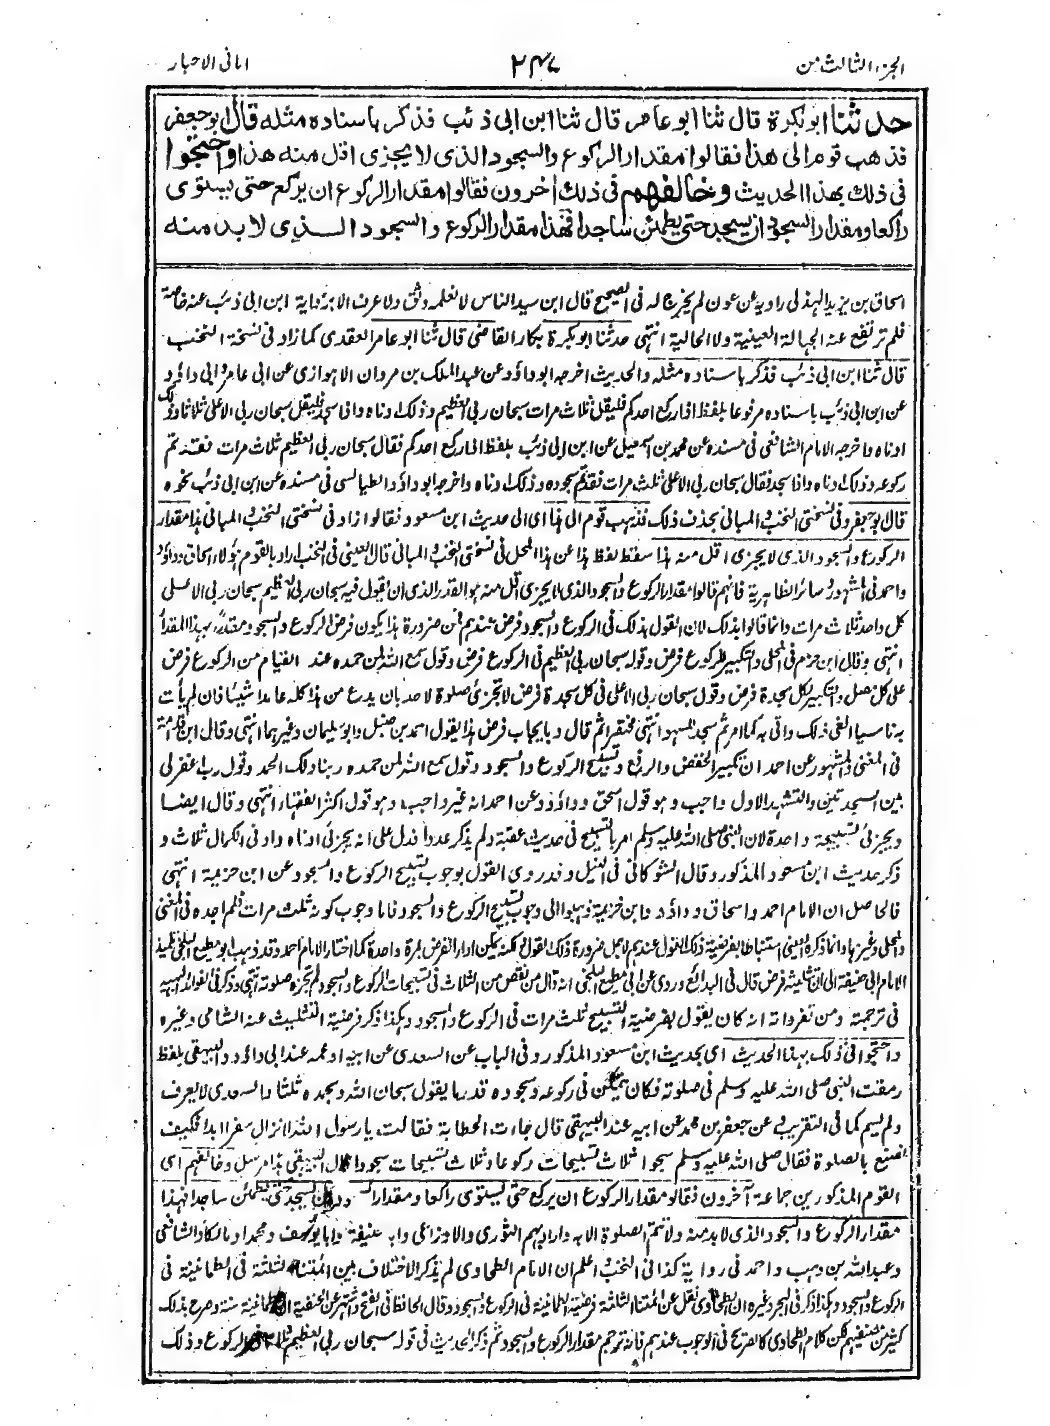 الجزء الثالث من ٢٤٧ امانى الاحبار
حدثنا ابو بكرة قال ثنا ابو عامر قال ثنا ابن ابى ذئب فذكر باسناده مثله قال ابو جعفر
فذهب قوم الى هذا فقالوا مقدار الركوع والسجود الذى لا يجزى اقل منه هذا واحتجوا
فى ذلك بهذا الحديث وخالفهم فى ذلك اخرون فقالوا مقدار الركوع ان يركع حتى يستوى
راكعا ومقدار السجود ان يسجد حتى يطمئن ساجدا فهذا مقدار الركوع والسجود الذى لا بد منه
اسحاق بن يزيد الهذلى راويه عن عون لم يخرج له فى الصحيح قال ابن سيد الناس لا نعلمه وثق ولا عرف الا برواية ابن ابى ذئب عنه خاصة
فلم ترتفع عنه الجهالة العينية ولا الحالية انتهى حدثنا ابو بكرة بكار القاضى قال ثنا ابو عامر العقدى كما زاد فى نسخة النخب
قال ثنا ابن ابى ذئب فذكر باسناده مثله والحديث اخرجه ابو داؤد عن عبد الملك بن مردان الاهوازى عن ابى عامر وابى داؤد
عن ابن ابى ذئب باسناده مرفوعا بلفظ اذا ركع احدكم فليقل ثلاث مرات سبحان ربى العظيم وذلك ادناه واذا سجد فليقل سبحان ربى الاعلى ثلاثا وذلك
ادناه واخرجه الامام الشافعى فى مسنده عن محمد بن اسمعيل عن ابن ابى ذئب بلفظ اذا ركع احدكم فقال سبحان ربى العظيم ثلاث مرات فقد تم
ركوعه وذلك ادناه واذا سجد فقال سبحان ربى الاعلى ثلث مرات فقد تم سجوده وذلك ادناه واخرجه ابو داؤد الطيالسى فى مسنده عن ابن ابى ذئب نحوه
قال ابو جعفر وفى نسختى النخب والمبانى بحذف ذلك فذهب قوم الى هذا اى الى حديث ابن مسعود فقالوا زاد فى نسختى النخب والمبانى هذا مقدار
الركوع والسجود الذى لا يجزى اقل منه هذا سقط لفظ هذا عن هذا المحل فى نسختى النخب والمبانى قال العينى فى النخب اراد بالقوم هؤلاء اسحاق وداؤد
واحمد فى المشهور وسائر الظاهرية فانهم قالوا مقدار الركوع والسجود الذى لا يجزى اقل منه هو القدر الذى ان يقول فيه سبحان ربى العظيم سبحان ربى الاعلى
كل واحد ثلاث مرات وانما قالوا بذلك لان القول بذلك فى الركوع والسجود فرض عندهم فمن ضرورة هذا يكون فرض الركوع والسجود مقدرا بهذا المقدار
انتهى وقال ابن حزم فى المحلى والتكبير للركوع فرض وقوله سبحان ربى العظيم فى الركوع فرض وقول سمع الله لمن حمده عند القيام من الركوع فرض
على كل مصل والتكبير لكل سجدة فرض وقول سبحان ربى الاعلى فى كل سجدة فرض لا تجزئ صلوة لاحد بان يدع من هذا كله عامدا شيئا فان لم يأت
به ناسيا الغى ذلك واتى به كما امر ثم سجد للسهو انتهى مختصرا ثم قال وبايجاب فرض هذا يقول احمد بن حنبل وابو سليمان وغيرهما انتهى وقال ابن قدامة
فى المغنى والمشهور عن احمد ان تكبير الخفض والرفع وتسبيح الركوع والسجود وقول سمع الله لمن حمده ربنا ولك الحمد وقول رب اغفر لى
بين السجدتين والتشهد الاول واجب وهو قول اسحق وداؤد وعن احمد انه غير واجب وهو قول اكثر الفقهاء انتهى وقال ايضا
ويجزئ تسبيحة واحدة لان النبى صلى الله عليه وسلم امر بالتسبيح فى حديث عقبة ولم يذكر عددا فدل على انه يجزئ ادناه وادنى الكمال ثلاث و
ذكر حديث ابن مسعود المذكور وقال الشوكانى فى النيل وقد روى القول بوجوب تسبيح الركوع والسجود عن ابن خزيمة انتهى
فالحاصل ان الامام احمد واسحاق وداؤد وابن خزيمة ذهبوا الى وجوب تسبيح الركوع والسجود فاما وجوب كونه ثلث مرات فلم اجده فى المغنى
والمحلى وغيرهما وانما ذكره العينى استنباطا بفرضية ذلك القول عندهم لاجل ضرورة ذلك القول لكنه يمكن اداء الفرض بمرة واحدة كما اختار الامام احمد وقد ذهب ابو مطيع البلخى تلميذ
الامام ابى حنيفة الى ان تثليثه فرض قال فى البدائع وروى عن ابى مطيع البلخى انه قال من نقص من الثلاث فى تسبيحات الركوع والسجود لم تجزه صلوته انتهى وذكر فى الفوائد البهية
فى ترجمته ومن تفرداته انه كان يقول بفرضية التسبيح ثلث مرات فى الركوع والسجود وهكذا ذكر فرضية التثليث عنه الشامى وغيره
واحتجوا فى ذلك بهذا الحديث اى بحديث ابن مسعود المذكور وفى الباب عن السعدى عن ابيه او عمه عند ابى داؤد والبيهقى بلفظ
رمقت النبى صلى الله عليه وسلم فى صلوته فكان يتمكن فى ركوعه وسجوده قدر ما يقول سبحان الله وبحمده ثلثا والسعدى لا يعرف
ولم يسم كما فى التقريب وعن جعفر بن محمد عن ابيه عند البيهقى قال جاءت الحطابة فقالت يا رسول الله انا لا نزال سفرا ابدا فكيف
نصنع بالصلوة فقال صلى الله عليه وسلم سبحوا ثلاث تسبيحات ركوعا وثلاث تسبيحات سجودا قال البيهقى هذا مرسل وخالفهم اى
القوم المذكورين جماعة آخرون فقالوا مقدار الركوع ان يركع حتى يستوى راكعا ومقدار السجود ان يسجد حتى يطمئن ساجدا فهذا
مقدار الركوع والسجود الذى لا بد منه ولا تتم الصلوة الا به واراد بهم الثورى والاوزاعى وابا حنيفة وابا يوسف ومحمدا ومالكا والشافعى
وعبد الله بن وهب واحمد فى رواية كذا فى النخب اعلم ان الامام الطحاوى لم يذكر الاختلاف بين ائمتنا الثلثة فى الطمانينة فى
الركوع والسجود وهكذا ذكر فى البحر وغيره ان الطحاوى نقل عن ائمتنا الثلثة فرضية الطمانينة فى الركوع والسجود وقال الحافظ فى الفتح واشتهر عن الحنفية ان الطمانينة سنة وصرح بذلك
كثير من مصنفيهم لكن كلام الطحاوى كالصريح فى الوجوب عندهم فانه ترجم مقدار الركوع والسجود ثم ذكر الحديث فى قوله سبحان ربى العظيم ثلاثا فى الركوع وذلك